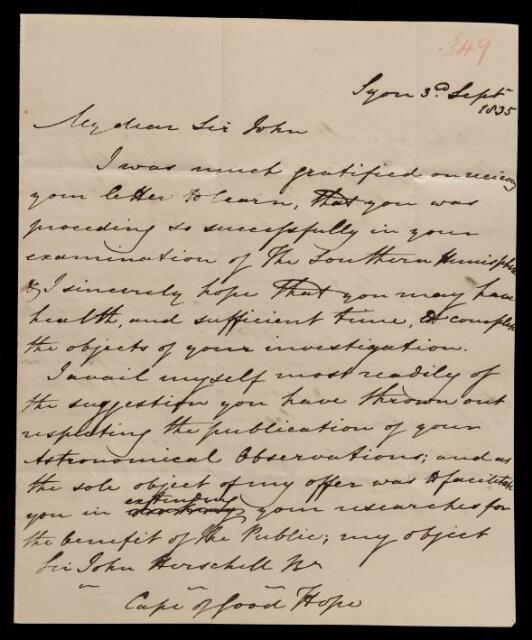 349
Syon 3d Sept
1835
My dear Sir John
I was much gratified on receiving
your letter to learn, that you was
proceding so successfully in your
examination of The Southern Hemisphere
& I sincerely hope that you may have
health, and sufficient time, to complete
the objects of your investigation.
I avail myself most readily of
the suggestion you have thrown out
respecting the publication of your
Astronomical Observations; and as
the sole object of my offer was to facilitate
extending
you in your researches for
the benefit of the Public; my object
Sir John Herschell
Cape of Good Hope